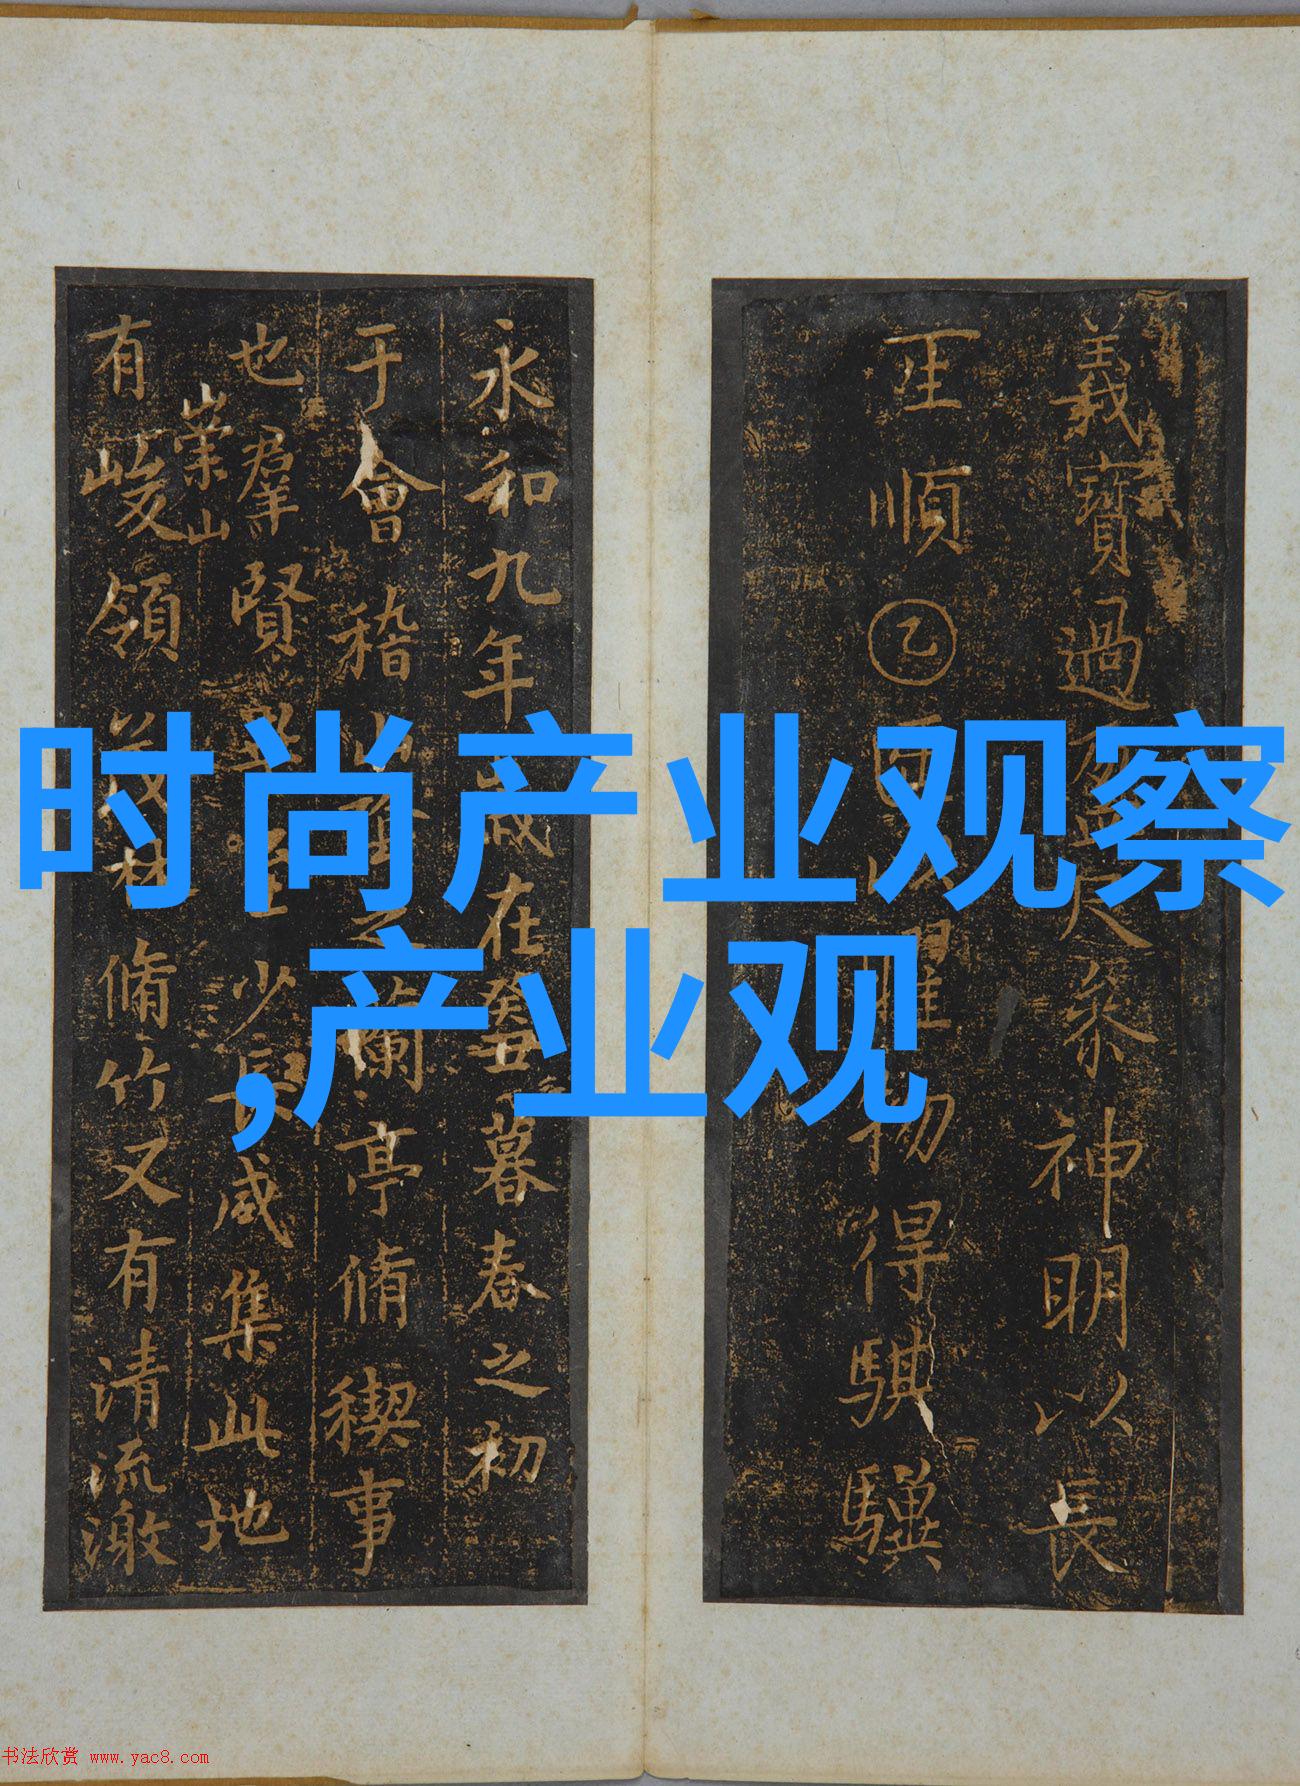 时尚产业观察
,产业观
義寶過尺參神明以長
順乙物得騏驥
永和九年歲在癸丑暮春之初
于會稽山陰之蘭亭脩禊事
也羣賢畢至少長咸集此地
崇山
有峻領茂林脩竹又有清流激
书法欣赏 www.yac8.com